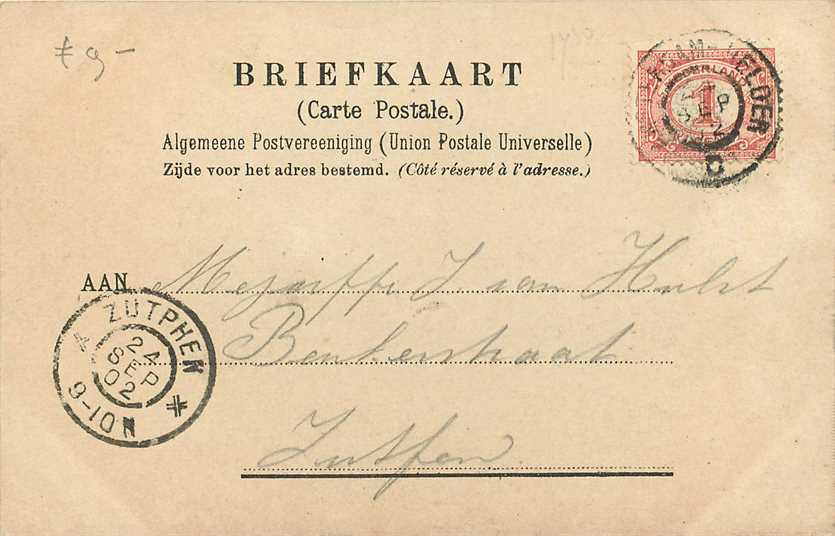 f 9,-
BRIEFKAART
(Carte Postale.)
Algemeene Postvereeniging (Union Postale Universelle)
Zijde voor het adres bestemd. (Côté réservé à l'adresse.)
NEDERLAND
1
HELDER
SEP
2
C
AAN Mejuffr J. van Hulst
straat
Zutfen
ZUTPHEN
24
SEP
02
9-10 N